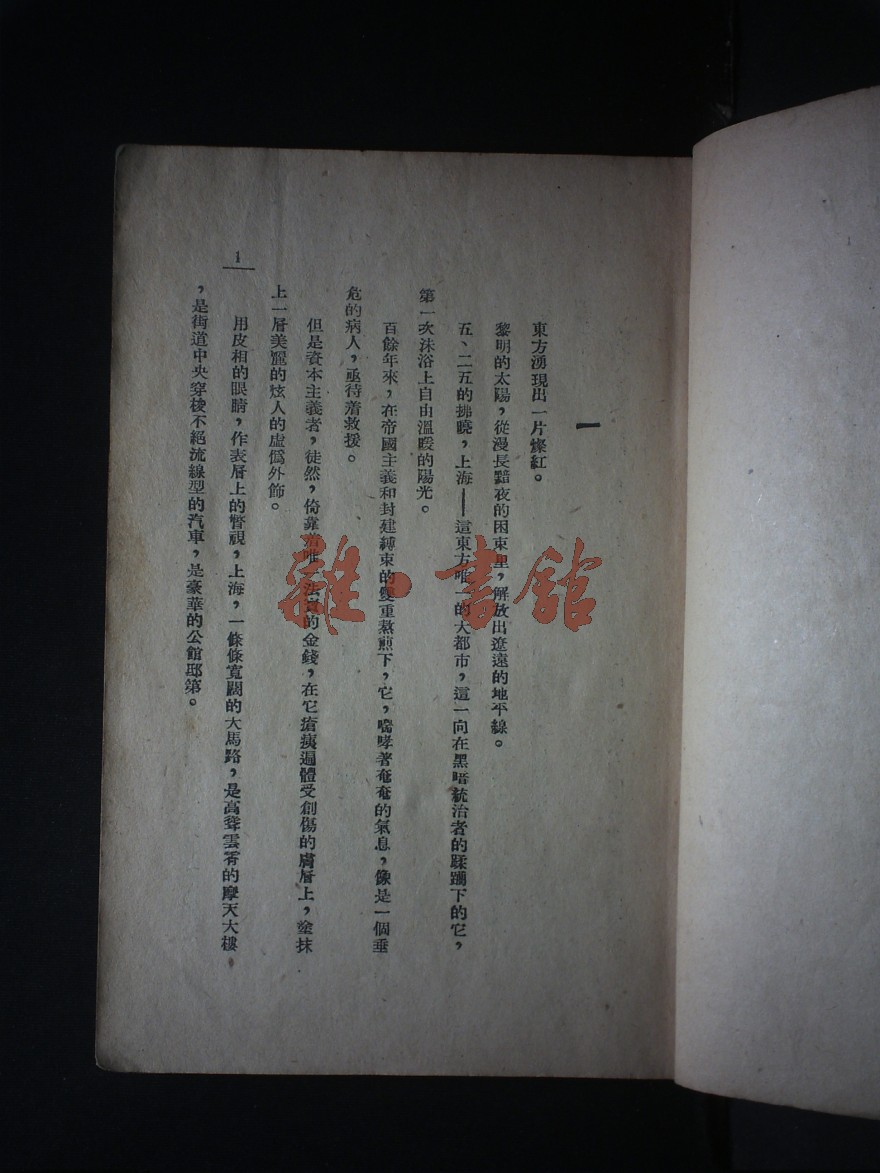 一
東方湧現出一片燦紅。
黎明的太陽，從漫長黯夜的困束里，解放出遼遠的地平線。
五、二五的拂曉，上海——這東方唯一的大都市，這一向在黑暗統治者的蹂躪下的它，
第一次沐浴上自由溫暖的陽光。
百餘年來，在帝國主義和封建縛束的雙重熬煎下，它，喘哮著奄奄的氣息，像是一個垂
危的病人，亟待着救援。
但是資本主義者，徒然，倚靠着唯一法寶的金錢，在它瘡痍遍體受創傷的膚層上，塗抹
上一層美麗的炫人的虛僞外飾。
用皮相的眼睛，作表層上的瞥視，上海，一條條寬闊的大馬路，是高聳雲霄的摩天大樓
，是街道中央穿梭不絕流線型的汽車，是豪華的公館邸第。
1
雜·書館